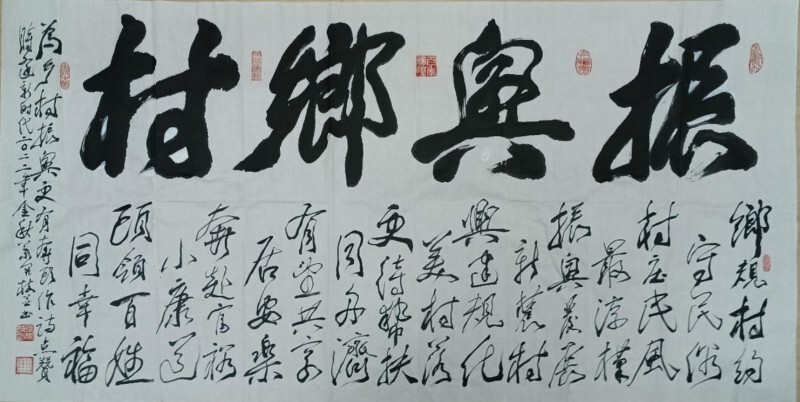 振興鄉村
鄉規村約
守民俗
村庄民風
最淳樸
振興發展
新農村
興建規化
美村落
更待幫扶
同舟濟
有望共享
居安樂
奔赴富裕
小康道
頤領百姓
同幸福
為乡村振興更有奔頭作詩点贊
時逢新时代二〇二二年金秋